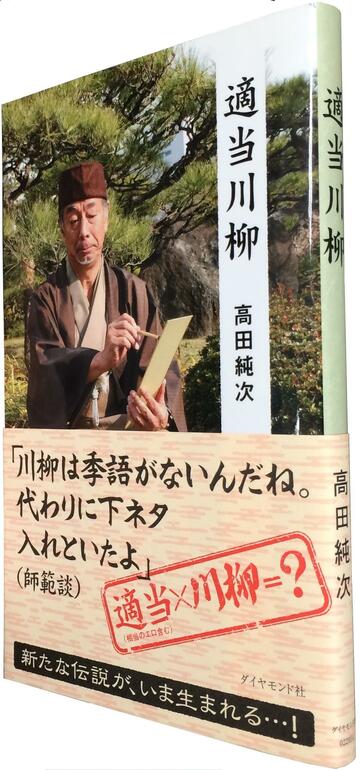 適当川柳
高田純次
「川柳は季語がないんだね。
代わりに下ネタ
入れといたよ」
(師範談)
適当×川柳=?
(相当のエロ含む)
新たな伝説が、いま生まれる…!
ダイヤモンド社
適当川柳
高田純次